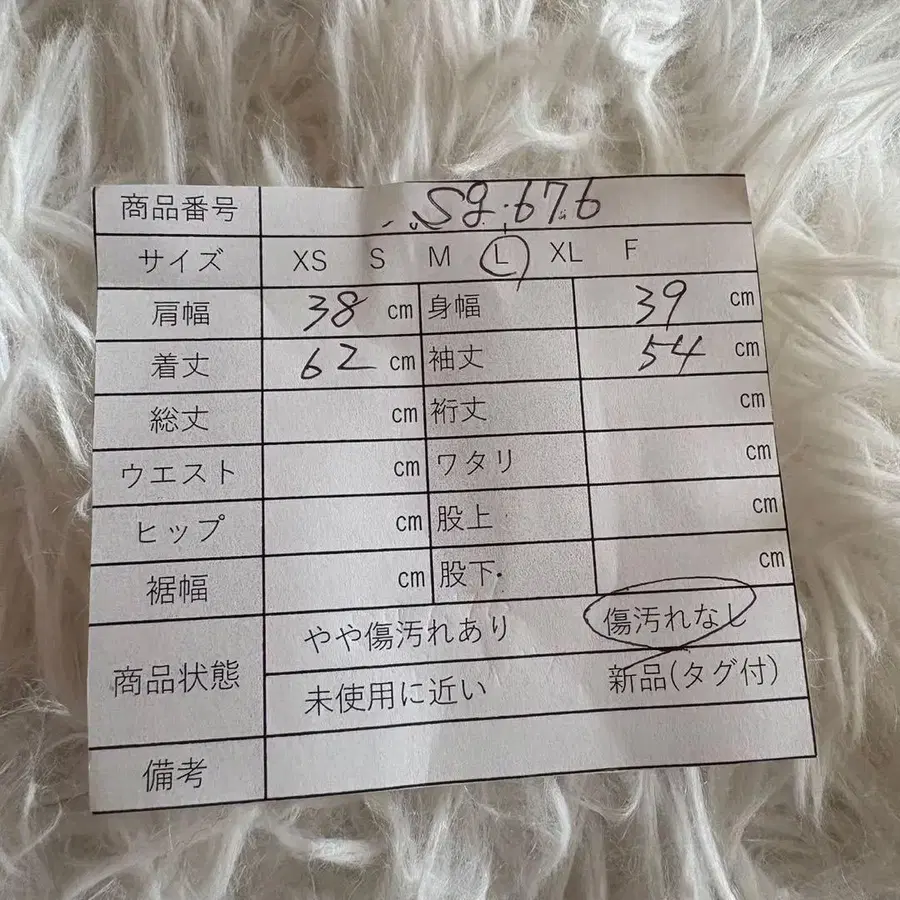 商品番号 Sg.676
サイズ XS S M L XL F
肩幅 38 cm 身幅 39 cm
着丈 62 cm 袖丈 54 cm
総丈 cm 裄丈 cm
ウエスト cm ワタリ cm
ヒップ cm 股上 cm
裾幅 cm 股下 cm
商品状態 やや傷汚れあり 傷汚れなし
未使用に近い 新品(タグ付)
備考